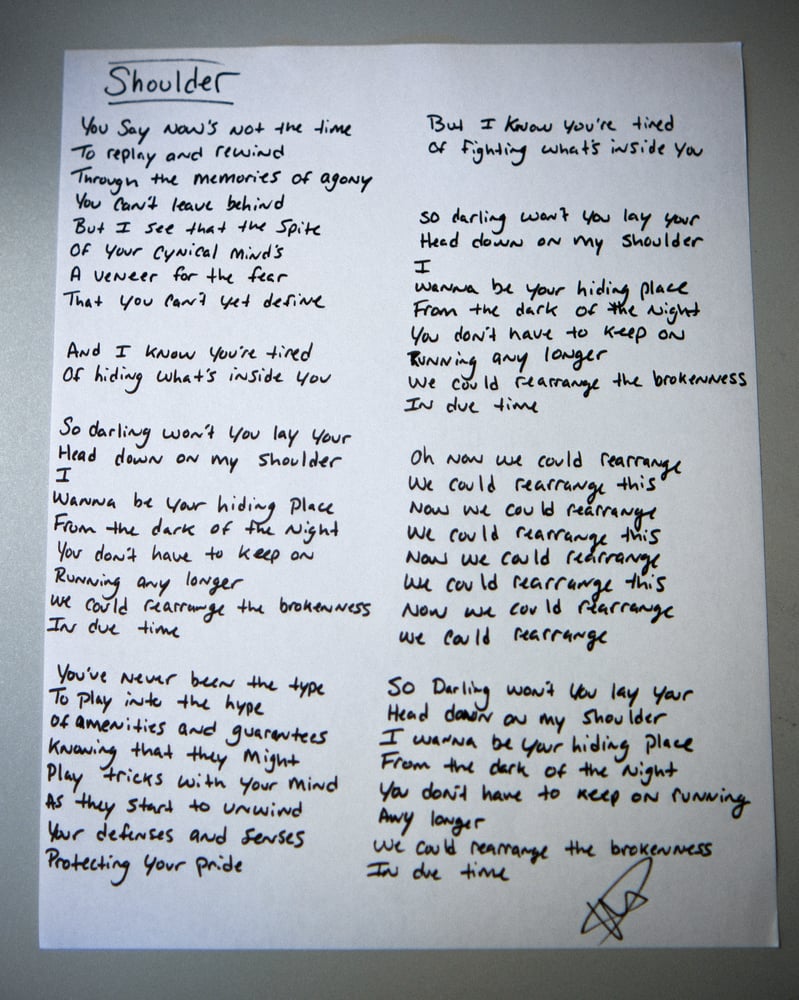 Shoulder
You Say Now's Not the time
To replay and rewind
Through the memories of agony
You can't leave behind
But I see that the Spite
Of Your Cynical Mind's
A veneer for the fear
That you can't yet define
And I know you're tired
Of hiding what's inside you
So darling won't you lay your
Head down on my shoulder
I
Wanna be your hiding Place
From the dark of the Night
You don't have to keep on
Running any longer
We could rearrange the brokenness
In due time
You've Never been the type
To play into the hype
Of amenities and guarantees
Knowing that they Might
Play tricks with your mind
As they start to unwind
Your defenses and senses
Protecting your pride
But I know you're tired
Of fighting what's inside you
So darling won't you lay your
Head down on my shoulder
I
Wanna be your hiding place
From the dark of the Night
You don't have to keep on
Running any longer
We could rearrange the brokenness
In due time
Oh Now we could rearrange
We could rearrange this
Now we could rearrange
We could rearrange this
Now we could rearrange
We could rearrange this
Now we could rearrange
We could rearrange
So Darling won't you lay your
Head down on my shoulder
I wanna be your hiding place
From the dark of the Night
You don't have to keep on running
Any longer
We could rearrange the brokenness
In due time